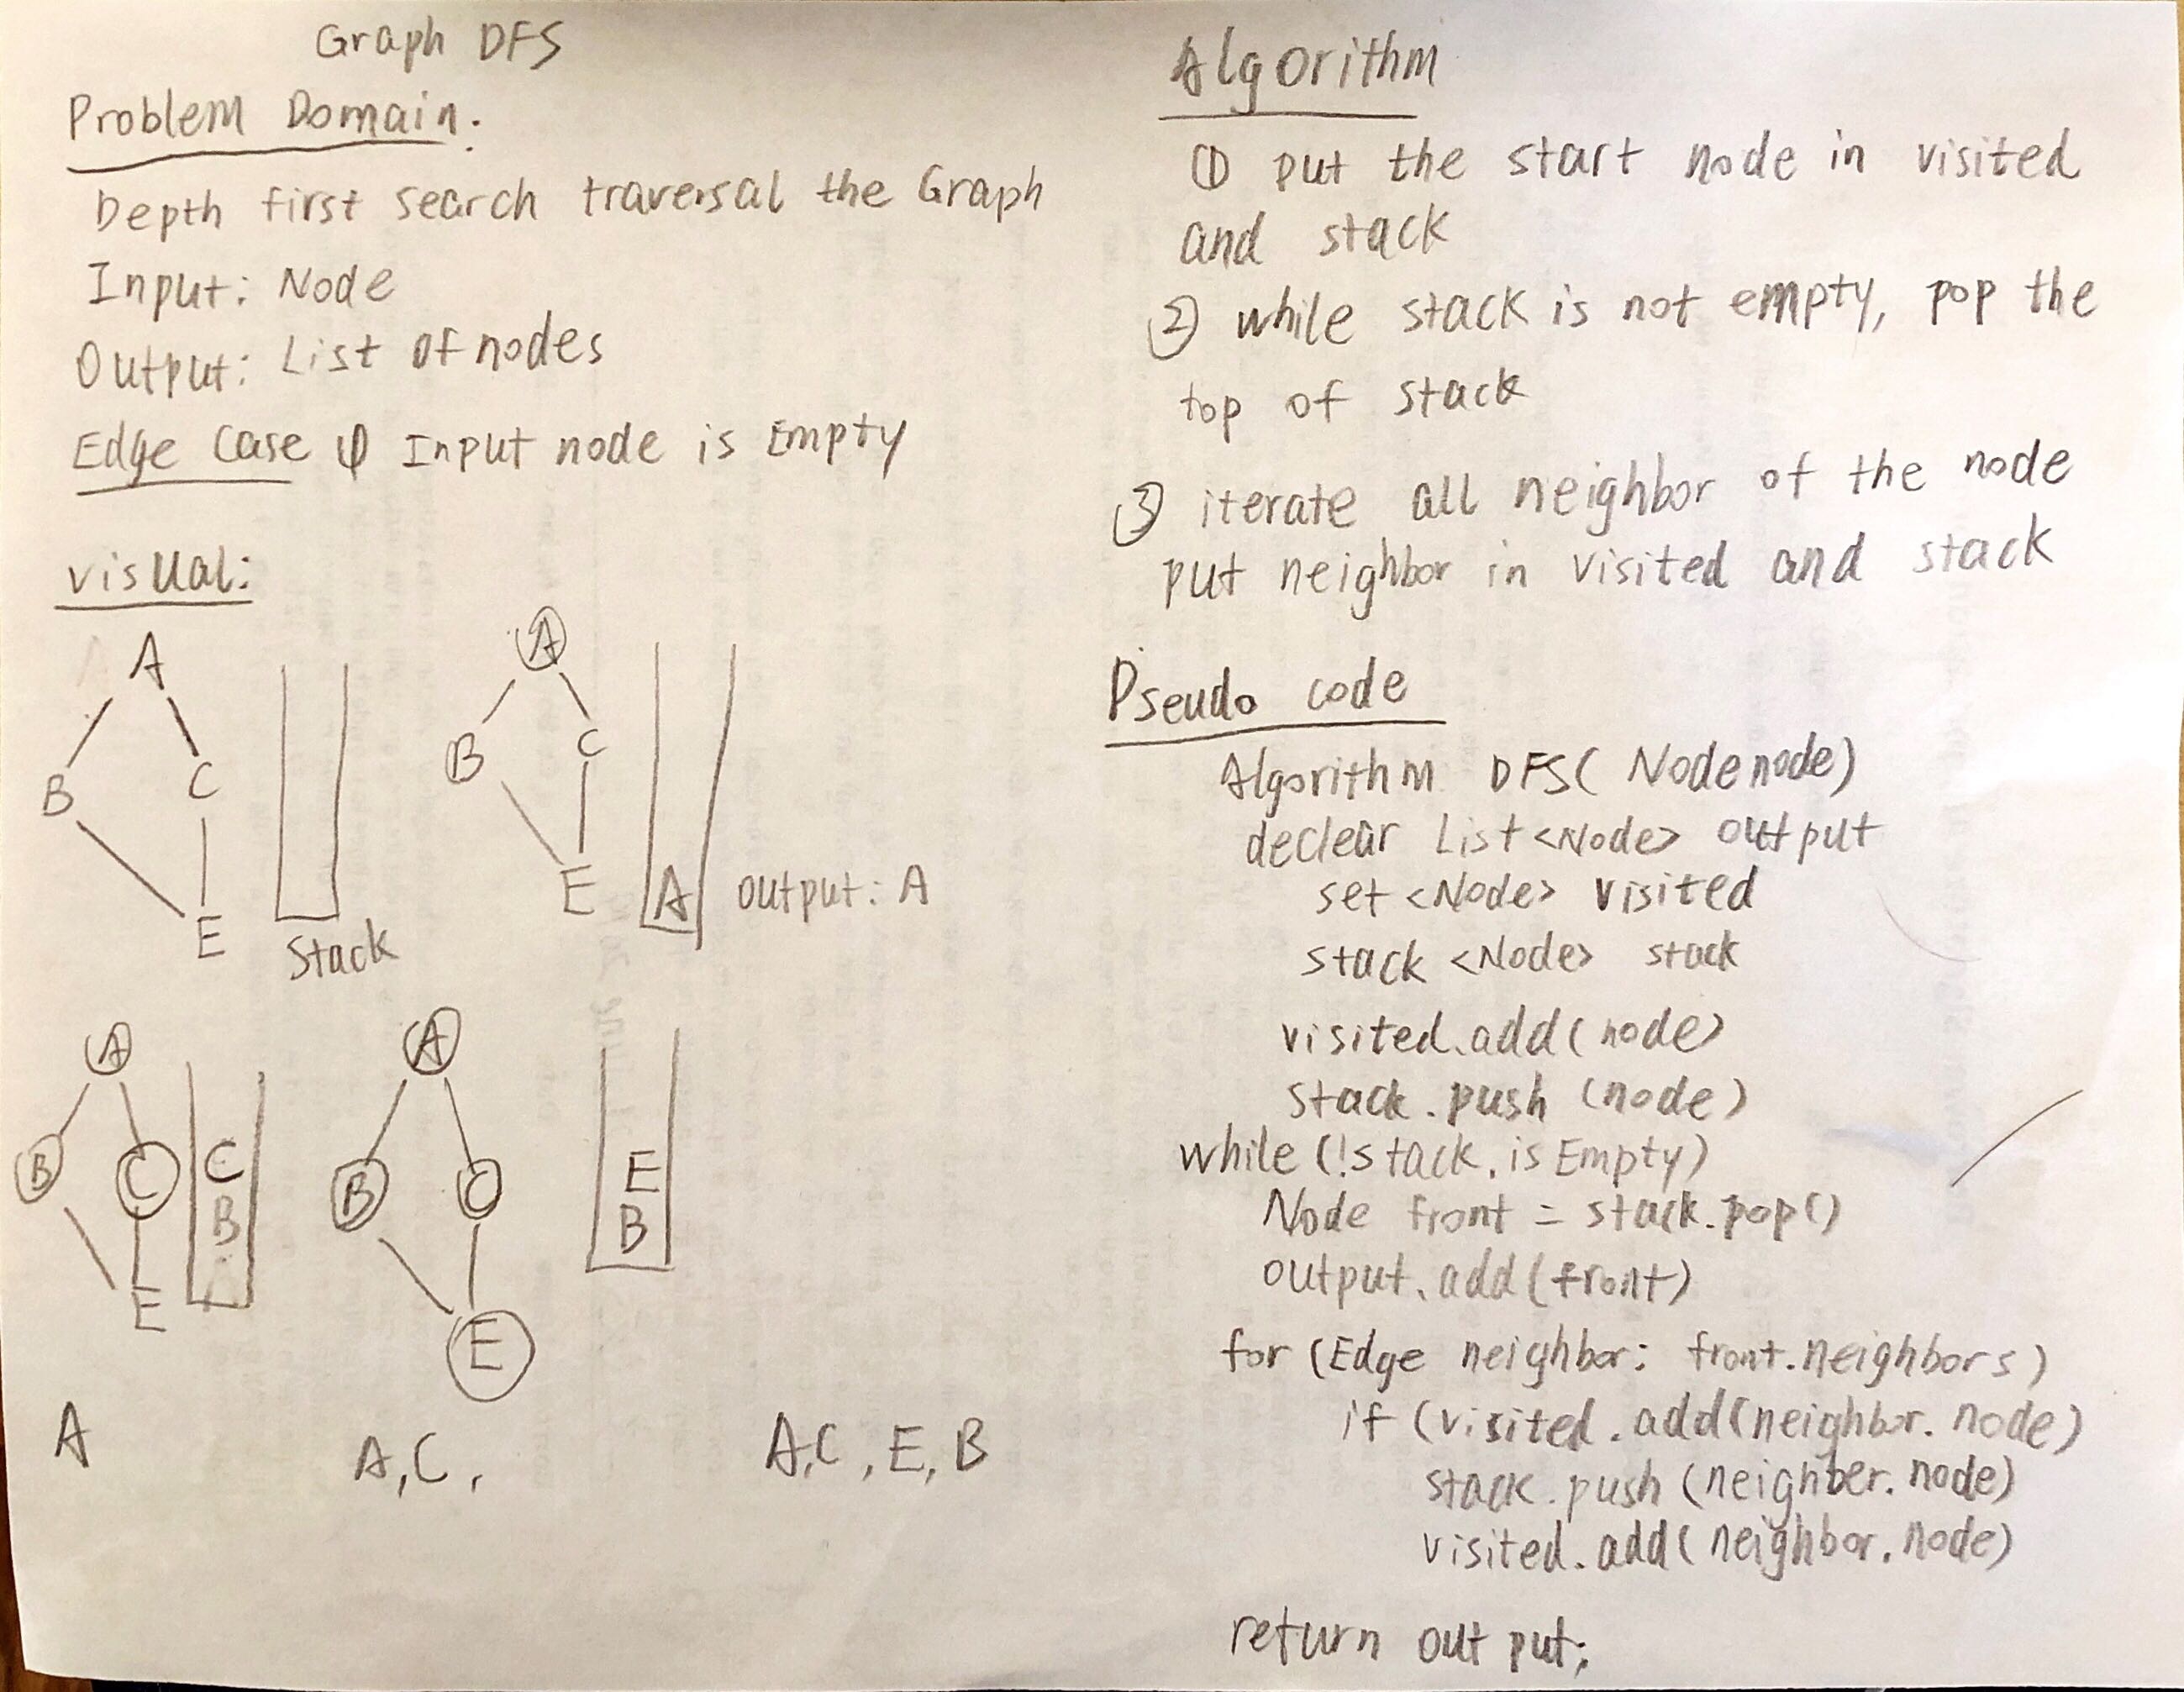 Graph DFS
Problem Domain:
Depth first search traversal the Graph
Input: Node
Output: List of nodes
Edge Case ① Input node is Empty
visual:
A
B
C
E
Stack
A
B
C
E
A
output: A
A
B
C
E
C
B
A
B
C
E
E
B
A
A,C,
A,C,E,B
Algorithm
① put the start node in visited
and stack
② while stack is not empty, pop the
top of stack
③ iterate all neighbor of the node
put neighbor in visited and stack
Pseudo code
Algorithm DFS( Node node)
declear List<Node> output
set <Node> visited
stack <Node> stack
visited.add(node)
stack.push (node)
while (!stack.isEmpty)
Node front = stack.pop()
output.add(front)
for (Edge neighbor: front.neighbors)
if (visited.add(neighbor.node)
stack.push (neighber.node)
visited.add(neighbor.node)
return output;